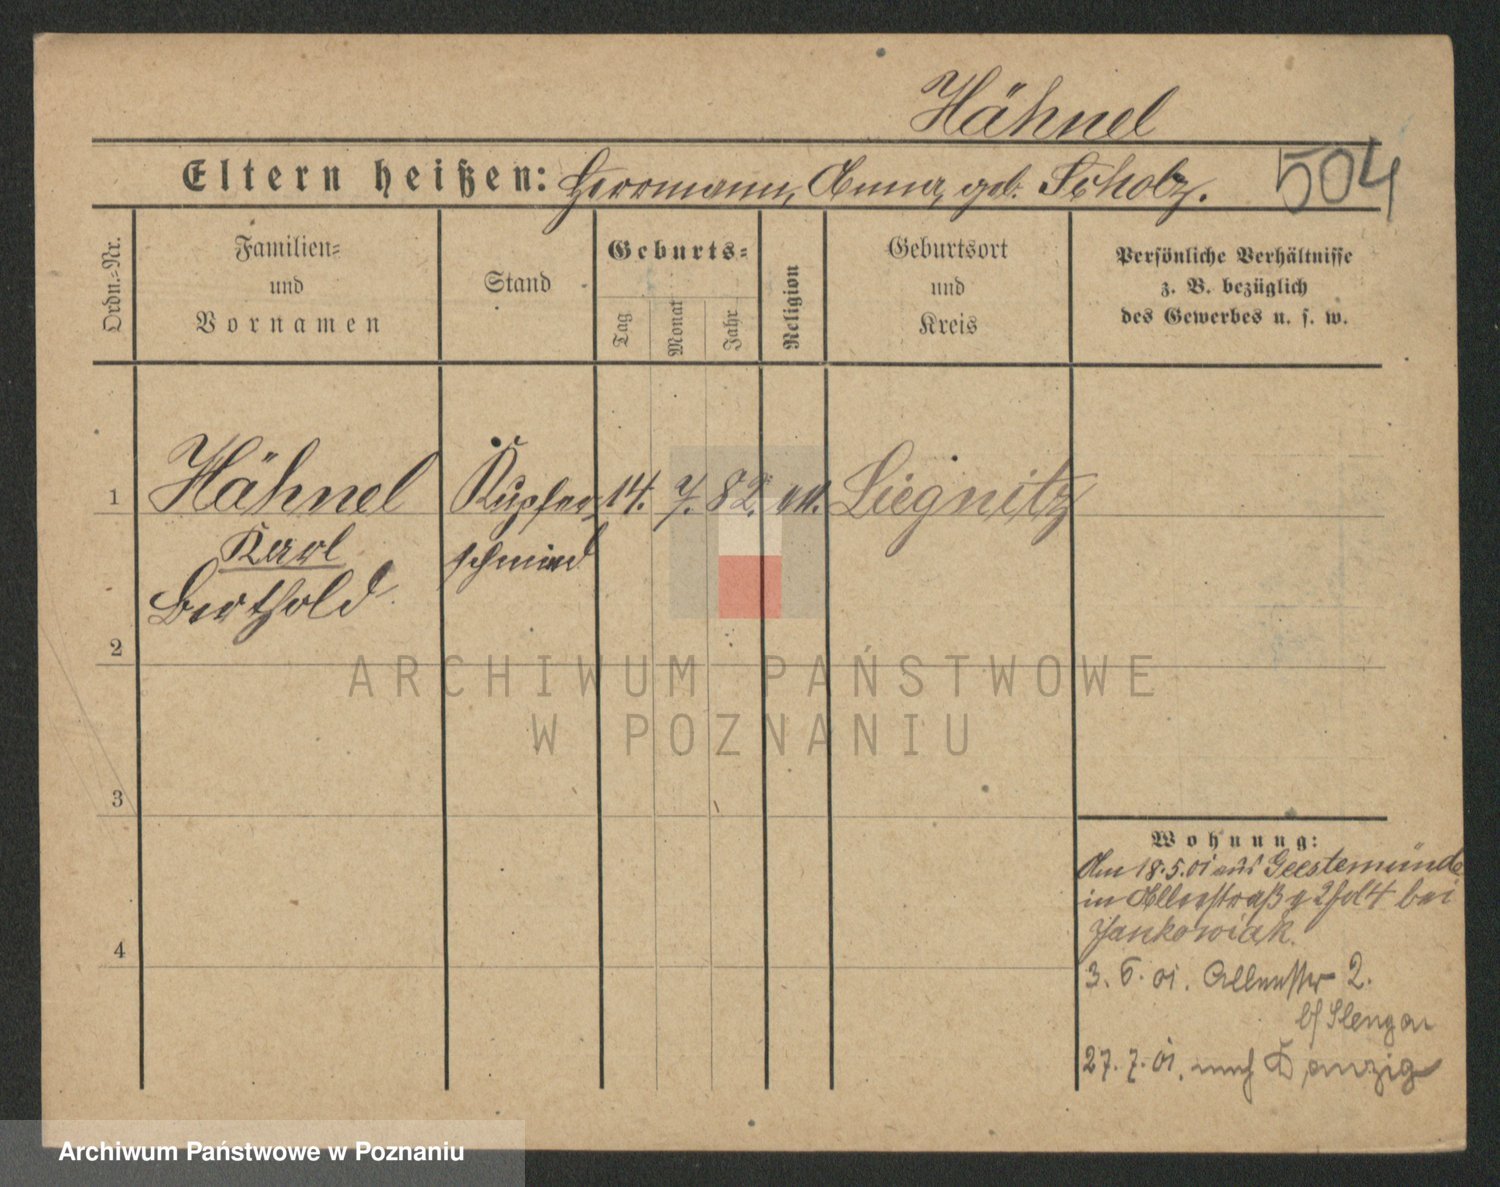 Hähnel
Eltern heißen: Herrmann, Anna, geb. Scholz.
504
Ordn.=Nr.
Familien=
und
Vornamen
Stand
Geburts=
Tag
Monat
Jahr
Religion
Geburtsort
und
Kreis
Persönliche Verhältnisse
z. B. bezüglich
des Gewerbes u. s. w.
1
Hähnel
Karl
Berthold
Kupfer-
schmied
14. 7. 82.
Liegnitz
2
3
4
Wohnung:
Am 18.5.01 aus Geestemünde
in bei
Jankowiak.
3. 6. 01. 2.
27. 7. 01. nach Danzig
ARCHIWUM PAŃSTWOWE
W POZNANIU
Archiwum Państwowe w Poznaniu